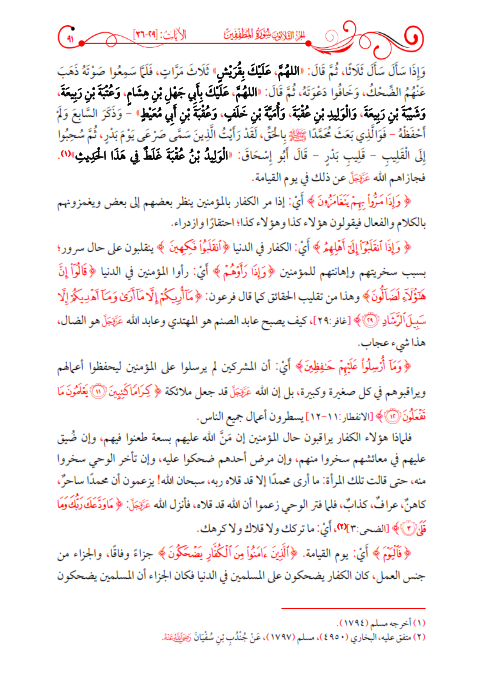 ٩١
الجزء الثلاثون سُورَةُ المُطَفِّفِينَ
الآيات: [٢٩-٣٦]
وَإِذَا سَأَلَ سَأَلَ ثَلَاثًا، ثُمَّ قَالَ: «اللهُمَّ، عَلَيْكَ بِقُرَيْشٍ» ثَلَاثَ مَرَّاتٍ، فَلَمَّا سَمِعُوا صَوْتَهُ ذَهَبَ
عَنْهُمُ الضِّحْكُ، وَخَافُوا دَعْوَتَهُ، ثُمَّ قَالَ: «اللهُمَّ، عَلَيْكَ بِأَبِي جَهْلِ بْنِ هِشَامٍ، وَعُتْبَةَ بْنِ رَبِيعَةَ،
وَشَيْبَةَ بْنِ رَبِيعَةَ، وَالْوَلِيدِ بْنِ عُقْبَةَ، وَأُمَيَّةَ بْنِ خَلَفٍ، وَعُقْبَةَ بْنِ أَبِي مُعَيْطٍ» - وَذَكَرَ السَّابِعَ وَلَمْ
أَحْفَظْهُ - فَوَالَّذِي بَعَثَ مُحَمَّدًا ﷺ بِالْحَقِّ، لَقَدْ رَأَيْتُ الَّذِينَ سَمَّى صَرْعَى يَوْمَ بَدْرٍ، ثُمَّ سُحِبُوا
إِلَى الْقَلِيبِ - قَلِيبِ بَدْرٍ - قَالَ أَبُو إِسْحَاقَ: «الْوَلِيدُ بْنُ عُقْبَةَ غَلَطٌ فِي هَذَا الْحَدِيثِ»(١).
فجازاهم الله عَزَّوَجَلَّ عن ذلك في يوم القيامة.
﴿وَإِذَا مَرُّوا بِهِمْ يَتَغَامَزُونَ﴾ أَيْ: إذا مر الكفار بالمؤمنين ينظر بعضهم إلى بعض ويغمزونهم
بالكلام والفعال فيقولون هؤلاء كذا وهؤلاء كذا؛ احتقارًا وازدراء.
﴿وَإِذَا انقَلَبُوا إِلَىٰ أَهْلِهِمُ﴾ أَيْ: الكفار في الدنيا ﴿انقَلَبُوا فَكِهِينَ﴾ ينقلبون على حال سرور؛
بسبب سخريتهم وإهانتهم للمؤمنين ﴿وَإِذَا رَأَوْهُمْ﴾ أَيْ: رأوا المؤمنين في الدنيا ﴿قَالُوا إِنَّ
هَٰؤُلَاءِ لَضَالُّونَ﴾ وهذا من تقليب الحقائق كما قال فرعون: ﴿مَا أُرِيكُمْ إِلَّا مَا أَرَىٰ وَمَا أَهْدِيكُمْ إِلَّا
سَبِيلَ الرَّشَادِ ٢٩﴾ [غافر:٢٩]، كيف يصبح عابد الصنم هو المهتدي وعابد الله عَزَّوَجَلَّ هو الضال،
هذا شيء عجاب.
﴿وَمَا أُرْسِلُوا عَلَيْهِمْ حَافِظِينَ﴾ أَيْ: أن المشركين لم يرسلوا على المؤمنين ليحفظوا أعمالهم
ويراقبوهم في كل صغيرة وكبيرة، بل إن الله عَزَّوَجَلَّ قد جعل ملائكة ﴿كِرَامًا كَاتِبِينَ ١١ يَعْلَمُونَ مَا
تَفْعَلُونَ ١٢﴾ [الانفطار:١١-١٢] يسطرون أعمال جميع الناس.
فلماذا هؤلاء الكفار يراقبون حال المؤمنين إن مَنَّ الله عليهم بسعة طعنوا فيهم، وإن ضُيق
عليهم في معائشهم سخروا منهم، وإن مرض أحدهم ضحكوا عليه، وإن تأخر الوحي سخروا
منه، حتى قالت تلك المرأة: ما أرى محمدًا إلا قد قلاه ربه، سبحان الله! يزعمون أن محمدًا ساحرٌ،
كاهنٌ، عرافٌ، كذابٌ، فلما فتر الوحي زعموا أن الله قد قلاه، فأنزل الله عَزَّوَجَلَّ: ﴿مَا وَدَّعَكَ رَبُّكَ وَمَا
قَلَىٰ ٣﴾ [الضحى:٣](٢). أَيْ: ما تركك ولا قلاك ولا كرهك.
﴿فَالْيَوْمَ﴾ أَيْ: يوم القيامة. ﴿الَّذِينَ آمَنُوا مِنَ الْكُفَّارِ يَضْحَكُونَ﴾ جزاءً وفاقًا، والجزاء من
جنس العمل، كان الكفار يضحكون على المسلمين في الدنيا فكان الجزاء أن المسلمين يضحكون
(١) أخرجه مسلم (١٧٩٤).
(٢) متفق عليه، البخاري (٤٩٥٠)، مسلم (١٧٩٧)، عَنْ جُنْدُبِ بْنِ سُفْيَانَ رَضِيَ اللَّهُ عَنْهُ.